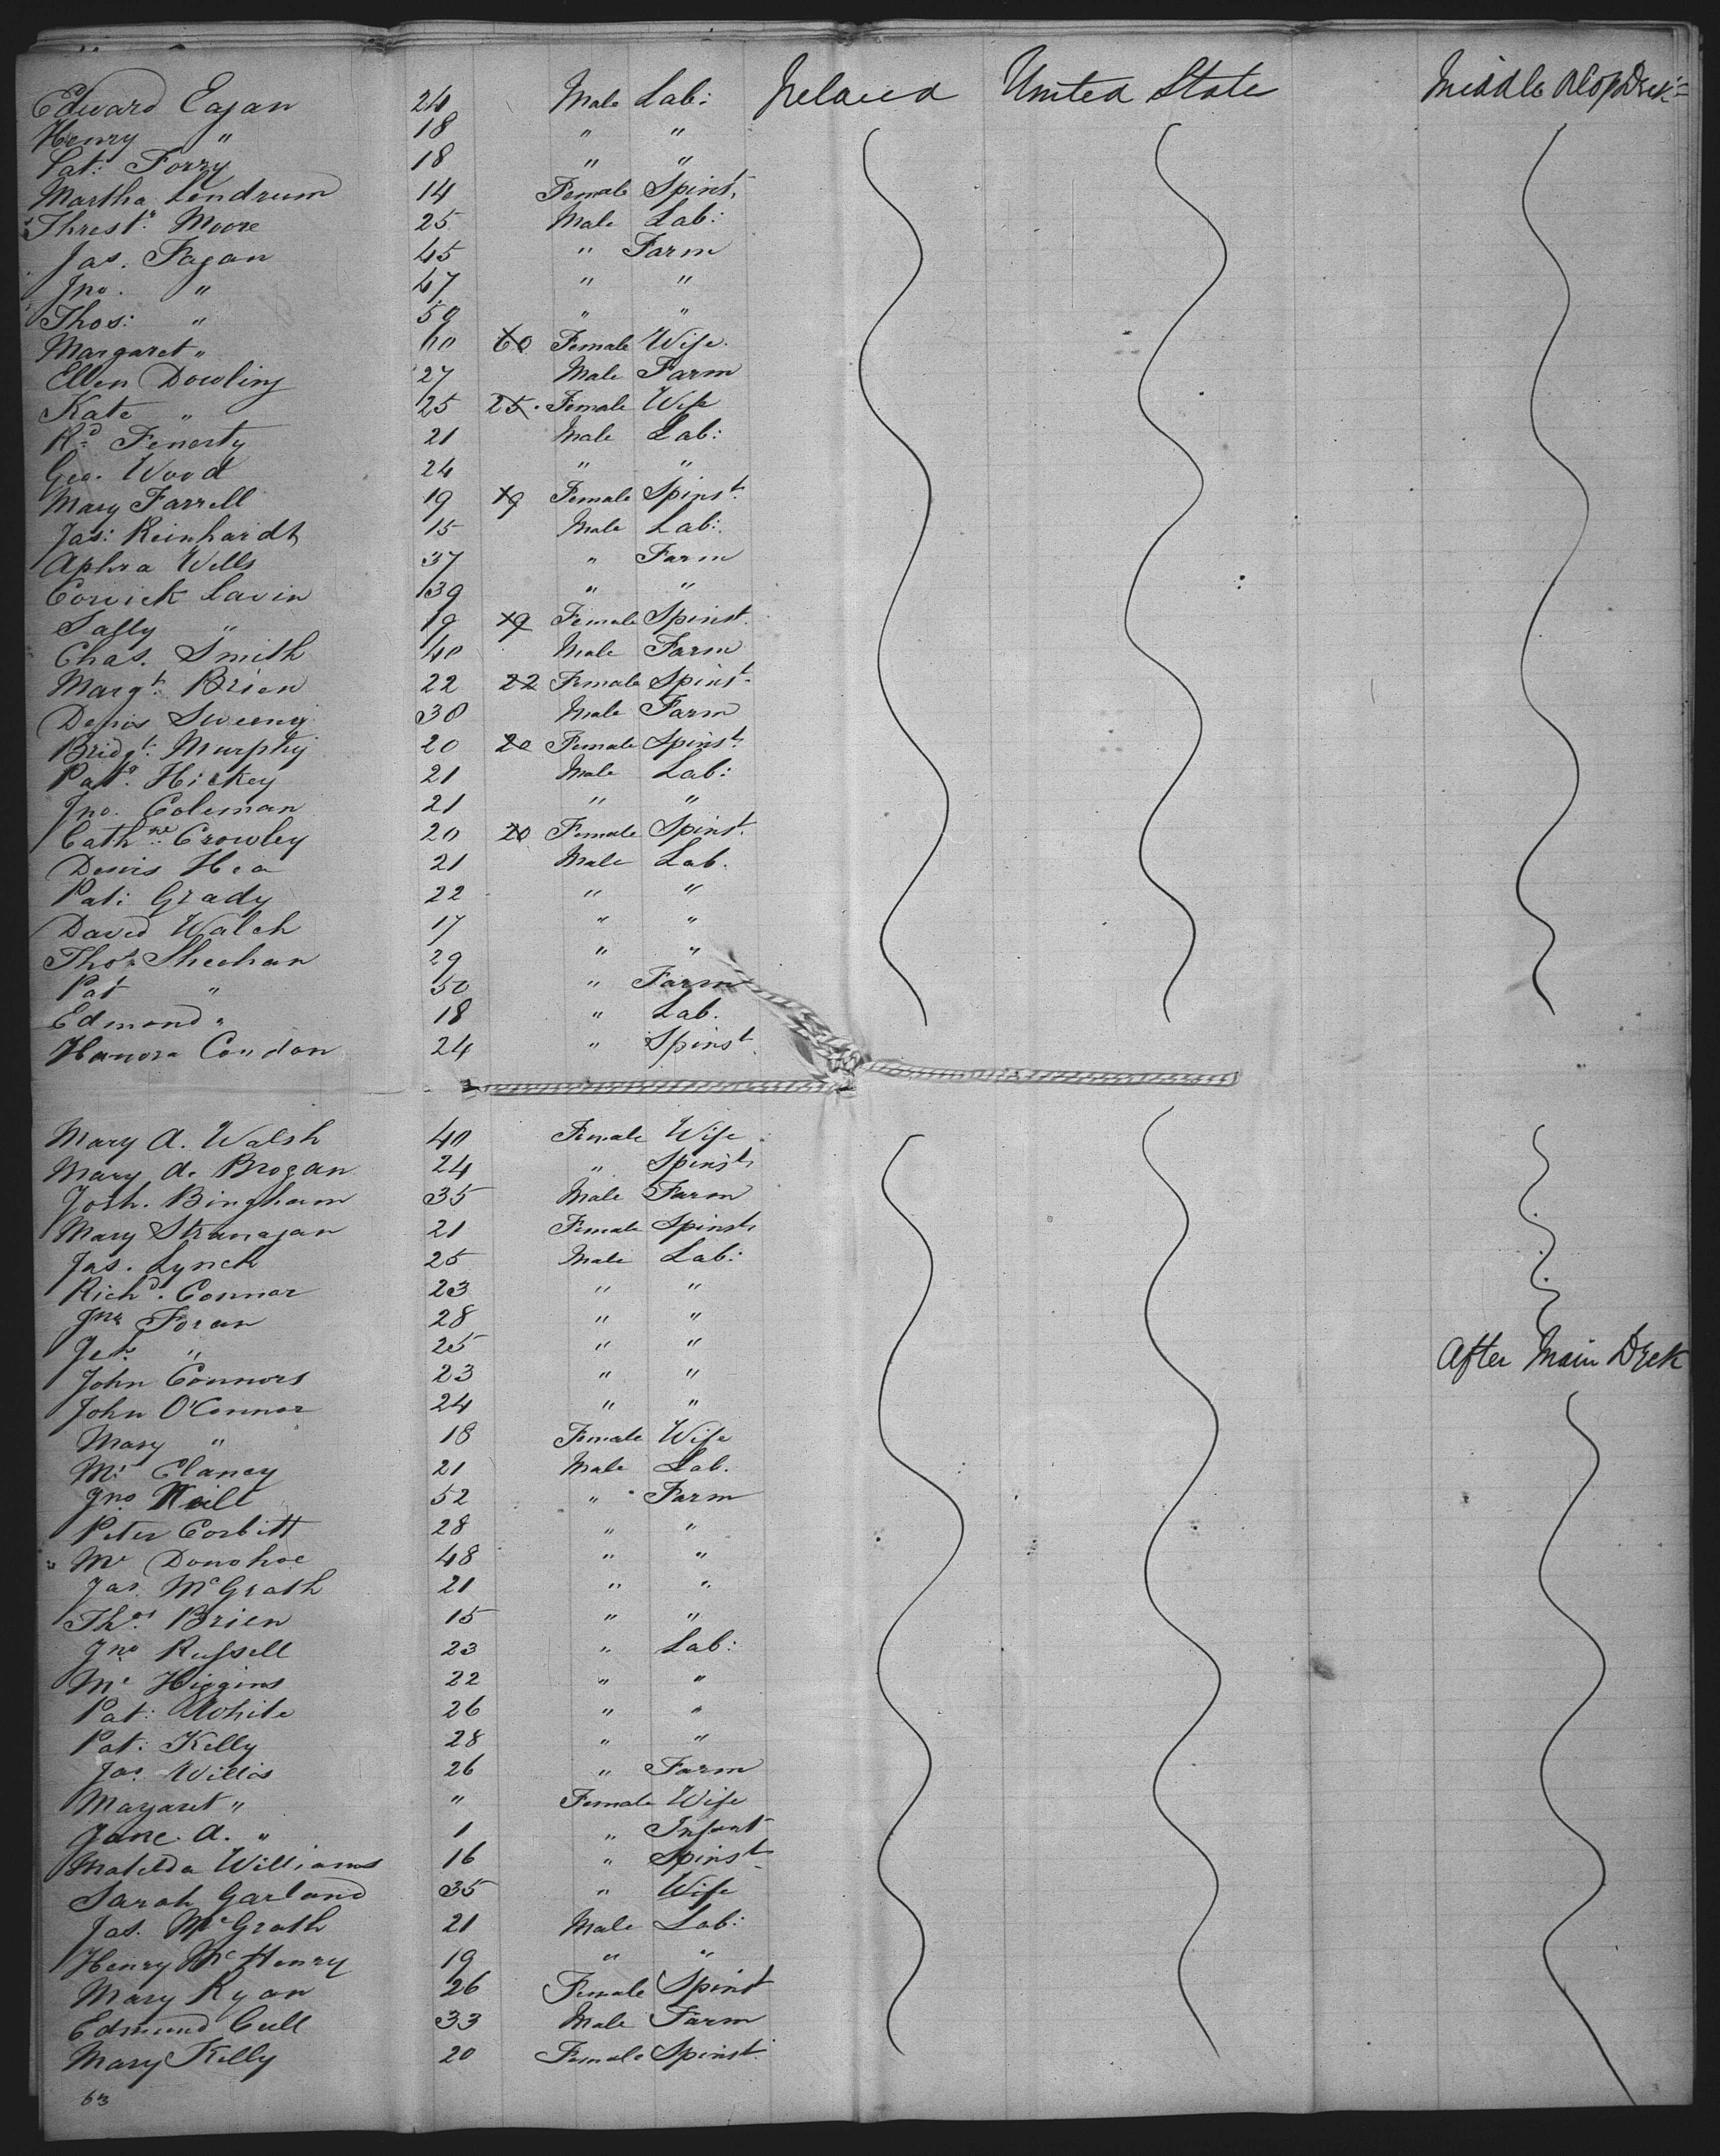 Edward Eagan 24 Male Lab: Ireland United State Middle Deck
Henry " 18 " "
Pat: Forry 18 " "
Martha Lendrum 14 Female Spinst.
Moore 25 Male Lab:
Jas. Fagan 45 " Farm
Jno. " 47 " "
Thos: " 50 " "
Margaret " 60 60 Female Wife
Ellen Dowling 27 Male Farm
Kate " 25 25 Female Wife
Rd. Fenerty 21 Male Lab:
Geo. Wood 24 " "
Mary Farrell 19 19 Female Spinst.
Jas: Reinhardt 15 Male Lab:
Aphra Wells 37 " Farm
Corvick Lavin 39 " "
Sally " 19 19 Female Spinst.
Chas. Smith 40 Male Farm
Margt. Brien 22 22 Female Spinst.
Denis Sweeny 30 Male Farm
Bridgt. Murphy 20 20 Female Spinst.
Patk. Hickey 21 Male Lab:
Jno. Coleman 21 " "
Cathne. Crowley 20 20 Female Spinst.
Denis Hea 21 Male Lab.
Pat: Grady 22 " "
David Walch 17 " "
Thos. Sheehan 29 " "
Pat " 50 " Farm
Edmond " 18 " Lab.
Hanora Condon 24 " Spinst.
Mary A. Walsh 40 Female Wife
Mary A. Brogan 24 " Spinst.
Josh. Bingham 35 Male Farm
Mary Stranagan 21 Female Spinst.
Jas. Lynch 25 Male Lab:
Richd. Connor 23 " "
Jno. Foran 28 " "
" 25 " " After Main Deck
John Connors 23 " "
John O'Connor 24 " "
Mary " 18 Female Wife
Ml. Clancy 21 Male Lab.
Jno. 52 " Farm
Peter Corbitt 28 " "
Ml. Donohoe 48 " "
Jas. McGrath 21 " "
Thos. Brien 15 " "
Jno. Russell 23 " Lab:
Ml. Higgins 22 " "
Pat: White 26 " "
Pat: Kelly 28 " "
Jas. Willis 26 " Farm
Magaret " " Female Wife
Jane. A. " 1 " Infant
Matilda Williams 16 " Spinst.
Sarah Garland 35 " Wife
Jas. McGrath 21 Male Lab:
Henry McHenry 19 " "
Mary Ryan 26 Female Spinst
Edmund Cull 33 Male Farm
Mary Kelly 20 Female Spinst.
63